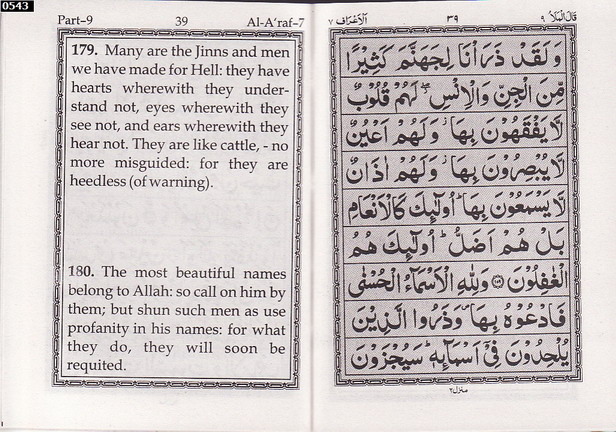 0543
Part-9 39 Al-A'raf-7
179. Many are the Jinns and men
we have made for Hell: they have
hearts wherewith they under-
stand not, eyes wherewith they
see not, and ears wherewith they
hear not. They are like cattle, - no
more misguided: for they are
heedless (of warning).
180. The most beautiful names
belong to Allah: so call on him by
them; but shun such men as use
profanity in his names: for what
they do, they will soon be
requited.
قَالَ الْمَلَاُ ٩ ٣٩ اَلْاَعْرَاف ٧
وَلَقَدْ ذَرَاْنَا لِجَهَنَّمَ كَثِيْرًا
مِّنَ الْجِنِّ وَالْاِنْسِ ۖ لَهُمْ قُلُوْبٌ
لَّا يَفْقَهُوْنَ بِهَا ۫ وَلَهُمْ اَعْيُنٌ
لَّا يُبْصِرُوْنَ بِهَا ۫ وَلَهُمْ اٰذَانٌ
لَّا يَسْمَعُوْنَ بِهَا ؕ اُولٰٓئِكَ كَالْاَنْعَامِ
بَلْ هُمْ اَضَلُّ ؕ اُولٰٓئِكَ هُمُ
الْغٰفِلُوْنَ ﴿١٧٩﴾ وَلِلّٰهِ الْاَسْمَآءُ الْحُسْنٰى
فَادْعُوْهُ بِهَا ۪ وَذَرُوا الَّذِيْنَ
يُلْحِدُوْنَ فِيْٓ اَسْمَآئِهٖ ؕ سَيُجْزَوْنَ
منزل ٢